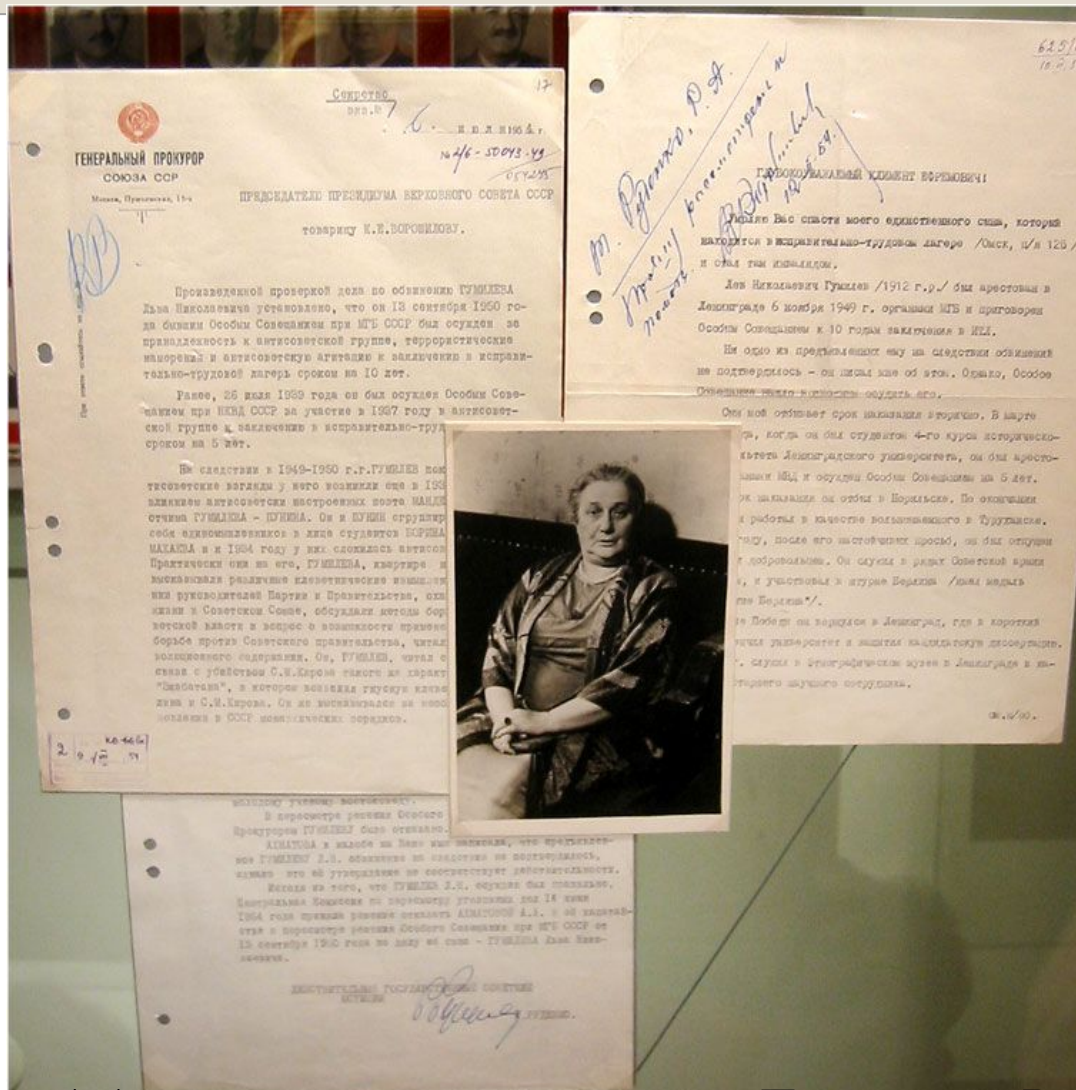 Секретно
экз.№ 1
17
6 июля 1954 г.
№ 2/6-50043-49
ГЕНЕРАЛЬНЫЙ ПРОКУРОР
СОЮЗА ССР
Москва, Пушкинская, 15-а
ПРЕДСЕДАТЕЛЮ ПРЕЗИДИУМА ВЕРХОВНОГО СОВЕТА СССР
товарищу К.Е.ВОРОШИЛОВУ.
Произведенной проверкой дела по обвинению ГУМИЛЕВА
Льва Николаевича установлено, что он 13 сентября 1950 го-
да бывшим Особым Совещанием при МГБ СССР был осужден за
принадлежность к антисоветской группе, террористические
намерения и антисоветскую агитацию к заключению в исправи-
тельно-трудовой лагерь сроком на 10 лет.
Ранее, 26 июля 1939 года он был осужден Особым Сове-
щанием при НКВД СССР за участие в 1937 году в антисовет-
ской группе к заключению в исправительно-труд
сроком на 5 лет.
На следствии в 1949-1950 г.г.ГУМИЛЕВ пок
тисоветские взгляды у него возникли еще в 193
влиянием антисоветски настроенных поэта МАНДЕ
отчима ГУМИЛЕВА - ПУНИНА. Он и ПУНИН сгруппир
себя единомышленников в лице студентов БОРИНА
МАХАЕВА и к 1934 году у них сложилась антисов
Практически они на его, ГУМИЛЕВА, квартире
высказывали различные клеветнические измышлен
ния руководителей Партии и Правительства, оха
жизни в Советском Союзе, обсуждали методы бор
ветской власти и вопрос о возможности примене
борьбе против Советского правительства, читал
волюционного содержания. Он, ГУМИЛЕВ, читал с
связи с убийством С.М.Кирова такого же характ
"Экбатана", в котором возводил гнусную клеве
лина и С.М.Кирова. Он же высказывался за необ
новления в СССР монархических порядков.
2
т. Руденко, Р.А.
Прошу рассмотреть и
помочь.
КВорошилов
12.II.54.
ГЛУБОКОУВАЖАЕМЫЙ КЛИМЕНТ ЕФРЕМОВИЧ!
Умоляю Вас спасти моего единственного сына, который
находится в исправительно-трудовом лагере /Омск, п/я 125 /
и стал там инвалидом.
Лев Николаевич Гумилев /1912 г.р./ был арестован в
Ленинграде 6 ноября 1949 г. органами МГБ и приговорен
Особым Совещанием к 10 годам заключения в ИТЛ.
Ни одно из предъявленных ему на следствии обвинений
не подтвердилось - он писал мне об этом. Однако, Особое
Совещание нашло возможным осудить его.
Сын мой отбывает срок наказания вторично. В марте
да, когда он был студентом 4-го курса историческо-
льтета Ленинградского университета, он был аресто-
анами МВД и осужден Особым Совещанием на 5 лет.
ок наказания он отбыл в Норильске. По окончании
н работал в качестве вольнонаемного в Туруханске.
году, после его настойчивых просьб, он был отпущен
т добровольцем. Он служил в рядах Советской армии
и участвовал в штурме Берлина /имел медаль
ие Берлина"/.
ле Победы он вернулся в Ленинград, где в короткий
ончил университет и защитил кандидатскую диссертацию.
г. служил в Этнографическом музее в Ленинграде в ка-
таршего научного сотрудника.
см.н/об.
молодому ученому востоковеду.
В пересмотре решения Особого
Прокурором ГУМИЛЕВУ было отказано.
АХМАТОВА в жалобе на Ваше имя написала, что предъявлен-
ное ГУМИЛЕВУ Л.Н. обвинение на следствии не подтвердилось,
однако это её утверждение не соответствует действительности.
Исходя из того, что ГУМИЛЕВ Л.Н. осужден был правильно,
Центральная Комиссия по пересмотру уголовных дел 14 июня
1954 года приняла решение отказать АХМАТОВОЙ А.А. в её ходатай-
стве о пересмотре решения Особого Совещания при МГБ СССР от
13 сентября 1950 года по делу её сына - ГУМИЛЕВА Льва Нико-
лаевича.
ДЕЙСТВИТЕЛЬНЫЙ ГОСУДАРСТВЕННЫЙ СОВЕТНИК
ЮСТИЦИИ
Р.РУДЕНКО.